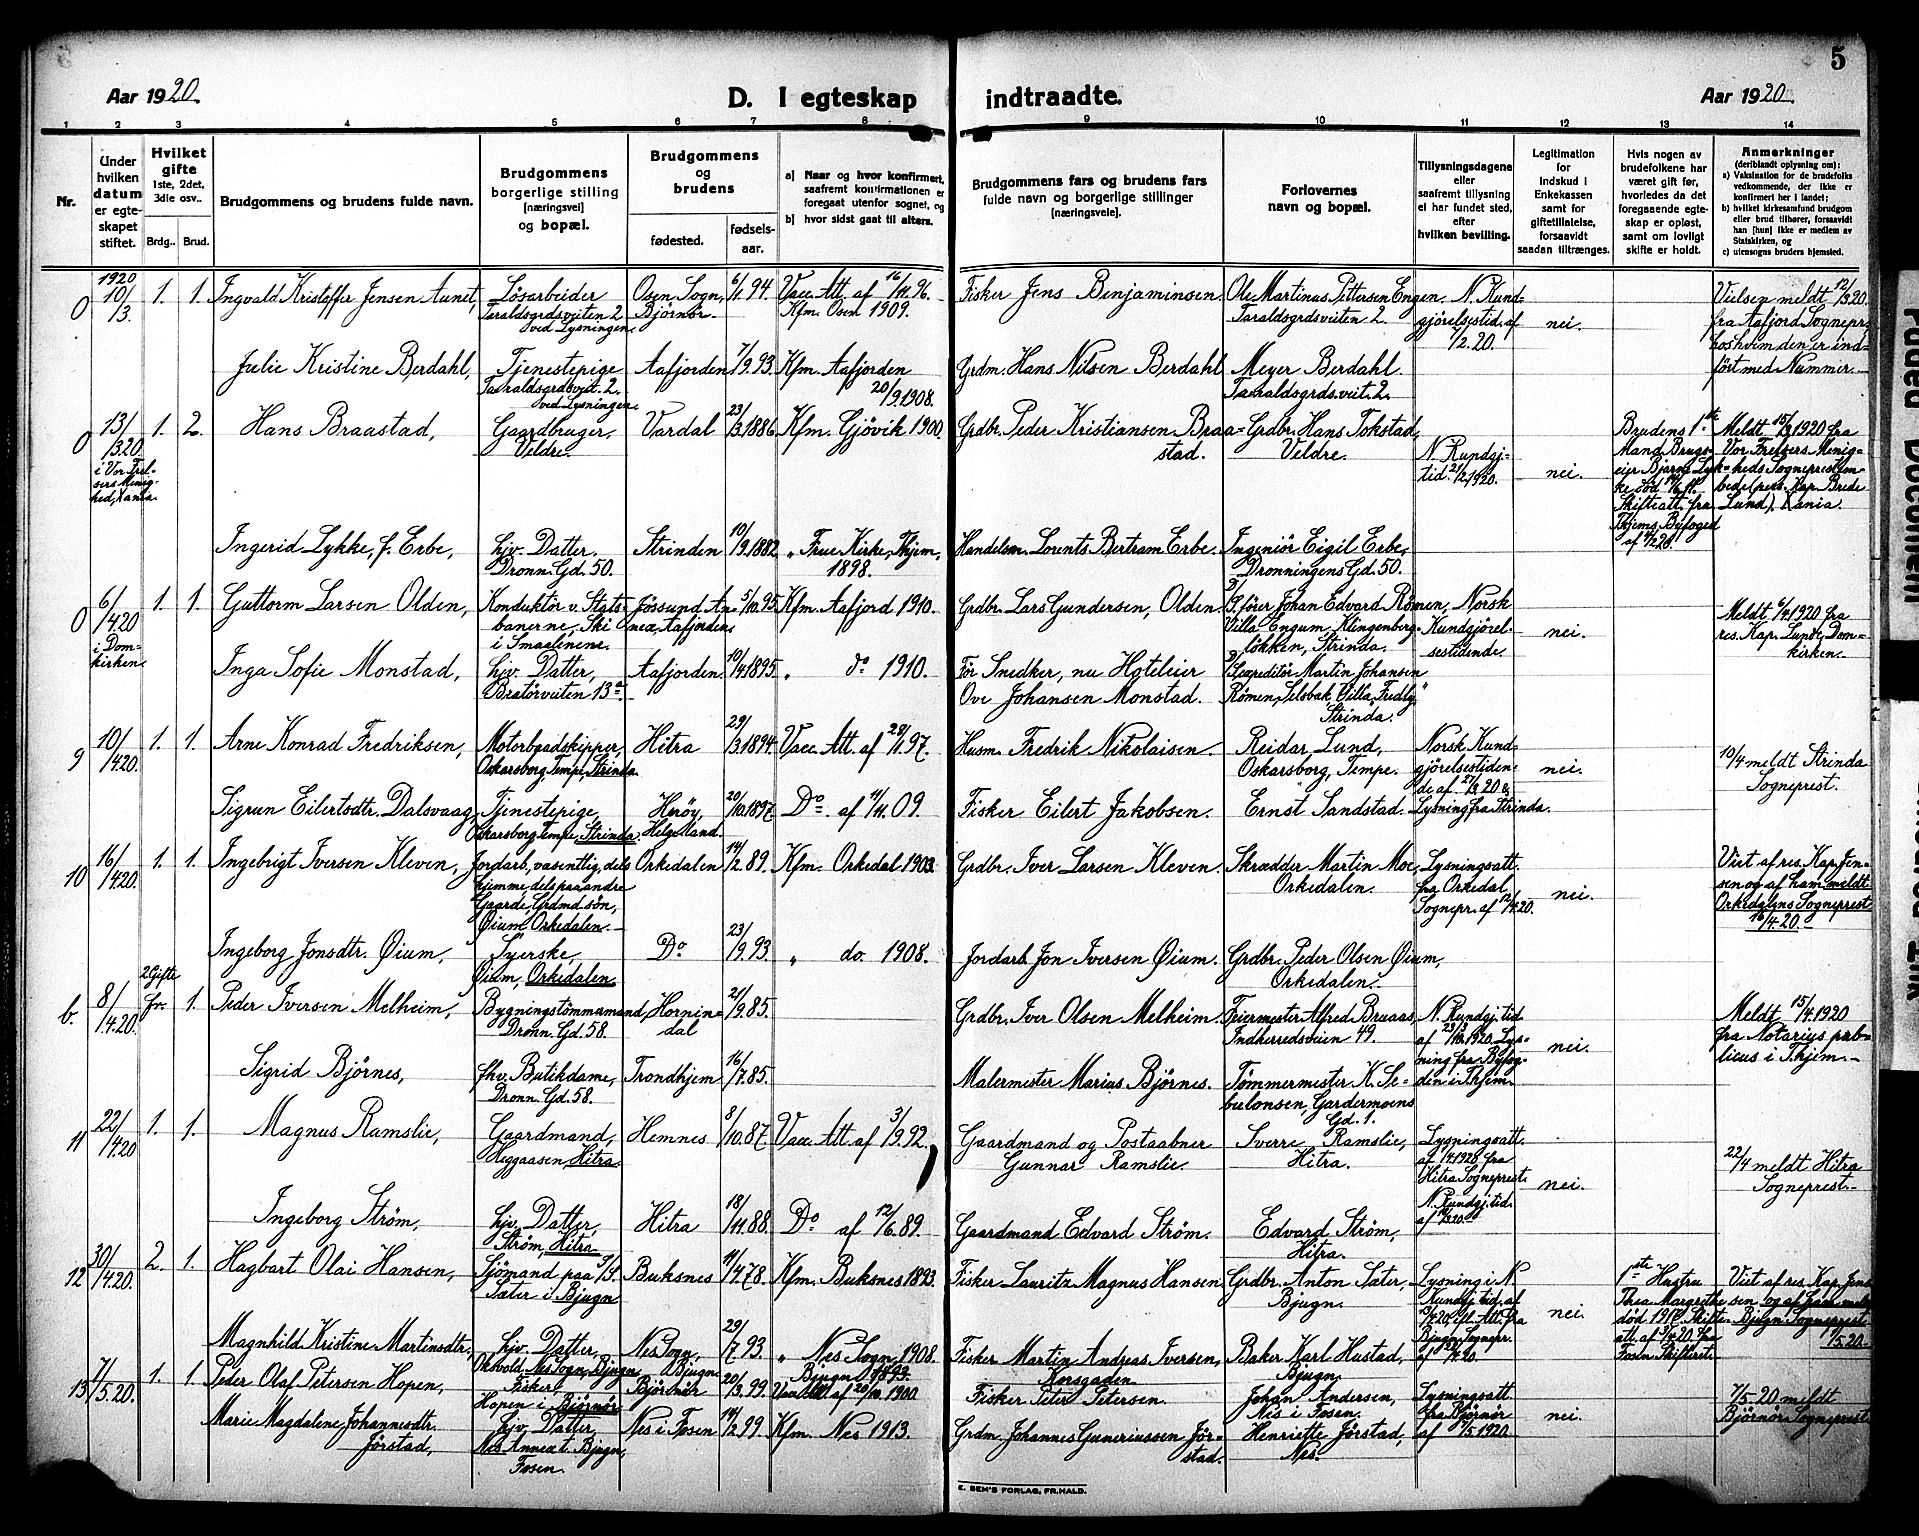 5
Aar 1920.
D. I egteskap indtraadte.
Aar 1920.
1 2 3 4 5 6 7 8 9 10 11 12 13 14
Nr.
Under hvilken datum er egteskapet stiftet.
Hvilket gifte 1ste, 2det, 3die osv..
Brdg.. Brud.
Brudgommens og brudens fulde navn.
Brudgommens borgerlige stilling [næringsvei] og bopæl.
Brudgommens og brudens
fødested. fødselsaar.
a) Naar og hvor konfirmert, saafremt konfirmationen er foregaat utenfor sognet, og
b) hvor sidst gaat til alters.
Brudgommens fars og brudens fars fulde navn og borgerlige stillinger [næringsveie].
Forlovernes navn og bopæl.
Tillysningsdagene eller saafremt tillysning ei har fundet sted, efter hvilken bevilling.
Legitimation for indskud i Enkekassen samt for giftetillatelse, forsaavidt saadan tiltrænges.
Hvis nogen av brudefolkene har været gift før, hvorledes da det foregaaende egteskap er opløst, samt om lovligt skifte er holdt.
Anmerkninger (deriblandt oplysning om):
a) Vaksination for de brudefolks vedkommende, der ikke er konfirmert her i landet;
b) hvilket kirkesamfund brudgom eller brud tilhører, forsaavidt han [hun] ikke er medlem av Statskirken, og
c) utensogns bruders hjemsted.
0 1920 10/3 1. 1. Ingvald Kristoffer Jensen Aunet, Løsarbeider Taraldsgrdsveiten 2 ved Lysningen. Osen Sogn, Bjørnør. 6/11.94. Vacc. Att. af 16/11.96. Kfm. Osen 1909. Fisker Jens Benjaminsen Ole Martinus Pettersen Engen. Taraldsgrdsveiten 2. N. Kundgjørelsestid. af 1/2.20. nei. Vielsen meldt 12/3.20. fra Aafjord Sognepr. hos hvem den er indført med Nummer.
Julie Kristine Berdahl, Tjenestepige Taraldsgrdsveit. 2. ved Lysningen. Aafjorden 7/9.93. Kfm. Aafjorden 20/9.1908. Grdm. Hans Nilsen Berdahl Meyer Berdahl. Taraldsgrdsveit. 2.
0 13/3.20. i Vor Frelsers Menighed, Xania. 1. 2. Hans Braastad, Gaardbruger, Veldre. Vardal 23/3.1886 Kfm. Gjøvik 1900. Grdbr. Peder Kristiansen Braastad. Grdbr. Hans Tokstad, Veldre. N. Kundgj.tid. 21/2.1920. nei. Brudens 1ste Mand Brugseier Bjarne Lykke død Skifteatt. fra Thjems Byfoged af 20. Meldt 15/3 1920 fra Vor Frelsers Menigheds Sogneprestembede (pers. Kap. Brede Lund), Xania.
Ingerid Lykke, f. Erbe, hjv. Datter. Dronn. Gd. 50. Strinden 10/9.1882 „ Frue Kirke, Thjem, 1898. Handelsm. Lorents Bertram Erbe. Ingeniør Eigil Erbe, Dronningens Gd. 50.
0 6/4.20 i Domkirken. 1. 1. Guttorm Larsen Olden, Konduktør v. Statsbanerne, Ski i Smaalenene. Jøssund Annex, Aafjorden, 5/10.95. Kfm. Aafjord 1910. Grdbr. Lars Gundersen, Olden. S. fører Johan Edvard Rømen, Villa Engum, Klingenbergløkken, Strinda. Norsk Kundgjørelsestidende. nei. Meldt 6/4 1920 fra res. Kap. Lund, Domkirken.
Inga Sofie Monstad, hjv. Datter, Bratørveiten 13a Aafjorden 10/4.1895. „ do 1910. Før Snedker, nu Hotelier Ove Johansen Monstad. Expeditør Martin Johansen Rømen, Selsbak, Villa „Fredly“, Strinda.
9 10/4.20. 1. 1. Arne Konrad Fredriksen, Motorbaadskipper, Oskarsborg, Tempe, Strinda. Hitra 29/3.1894. Vacc. Att. af 28/11.97. Husm. Fredrik Nikolaisen. Reidar Lund, Oskarsborg, Tempe. Norsk Kundgjørelsestidende af 27/3.20 & Lysning fra Strinda. nei. 10/4 meldt Strinda Sogneprest.
Sigrun Eilertsdtr. Dalsvaag, Tjenestepige, Oskarsborg Tempe, Strinda. Herøy, Helgeland. 20/10.1897. Do. af 11/11.09. Fisker Eilert Jakobsen Ernst Sandstad.
10 16/4.20. 1. 1. Ingebrigt Iversen Kleven, Jordarb., væsentlig, dels hjemme, dels paa andre Gaarde, Grdmd. søn, Øium, Orkedalen. Orkedalen 14/2.89. Kfm. Orkedal 1903. Grdbr. Iver Larsen Kleven Skrædder Martin Moe, Orkedalen. Lysningsatt. fra Orkedal Sognepr. af 12/4.20. nei. Viet af res. Kap. Jensen og af ham meldt Orkedalens Sogneprest 16/4.20.
Ingeborg Jonsdtr. Øium, Syerske, Øium, Orkedalen. Do 23/9.93. „ do. 1908. Jordarb. Jon Iversen Øium. Grdbr. Peder Olsen Øium, Orkedalen.
b. 8/4.20. 2 Gifte fr. 1. Peder Iversen Melheim, Bygningstømmermand, Dronn. Gd. 58. Hornindal 21/9.85. Grdbr. Iver Olsen Melheim. Feiermester Alfred Bruaas, Indherredsveien 49. N. Kundgj. tid. af 23/3.1920. Lysning fra Byfogden i Thjem. nei. Meldt 15/4.1920 fra Notarius publicus i Thjem.
Sigrid Bjørnes, fhv. Butikdame, Dronn. Gd. 58. Trondhjem 16/7.85. Malermester Marius Bjørnes. Tømmermester K. Sebulonsen, Gardermoens Gd. 1.
11 22/4.20 1. 1. Magnus Ramslie, Gaardmand, Heggaasen, Hitra. Hemnes 8/10.87. Vacc. Att. af 3/9.92. Gaardmand og Postaabner Gunnar Ramslie. Sverre Ramslie, Hitra. Lysningsatt. af 1920 fra Hitra Sogneprest. N. Kundgj. tid. af nei. 22/4 meldt Hitra Sogneprest.
Ingeborg Strøm, hjv. Datter, Strøm, Hitra. Hitra 18/11.88. Do af 12/6.89. Gaardmand Edvard Strøm. Edvard Strøm, Hitra.
12 30/4.20. 2. 1. Hagbart Olai Hansen, Sjømand paa D/S. Sæter i Bjugn Buksnes 11/4.78. Kfm. Buksnes 1893. Fisker Lauritz Magnus Hansen Grdbr. Anton Sæter, Bjugn. Lysning i N. Kundgj. tid. af 20, Att. fra Bjugn Sognepr. af 20. nei. 1ste Hustru Thea Margrethe død Skifteatt. af 20 fra Fosen Skifteret. Viet af res. Kap. Jensen og af ham meldt Bjugn Sogneprest 1/5.20.
Magnhild Kristine Martinsdtr, hjv. Datter, Nes Sogn, Bjugn Nes Sogn, Bjugn 29/7.93. „ Nes Sogn, Bjugn 1908. Fisker Martin Andreas Iversen, Korsgaden Baker Karl Hustad, Bjugn.
13 7/5.20. 1. 1. Peder Olaf Petersen Hopen, Fisker, Hopen i Bjørnør Bjørnør 20/3.99. Vacc. Att. af 20/10.1900. Fisker Peter Petersen. Johan Andersen, Nes i Fosen. Lysningsatt. fra Bjørnør af /5.1920. nei. 7/5.20 meldt Bjørnør Sogneprest.
Marie Magdalene Johannesdtr. Jørstad, hjv. Datter, Nes Annex t. Bjugn, Fosen. Nes i Fosen 14/2.99. Kfm. Nes 1913. Grdm. Johannes Guneriussen Jørstad. Henriette Jørstad, Nes.
E. SEM'S FORLAG, FR.HALD.